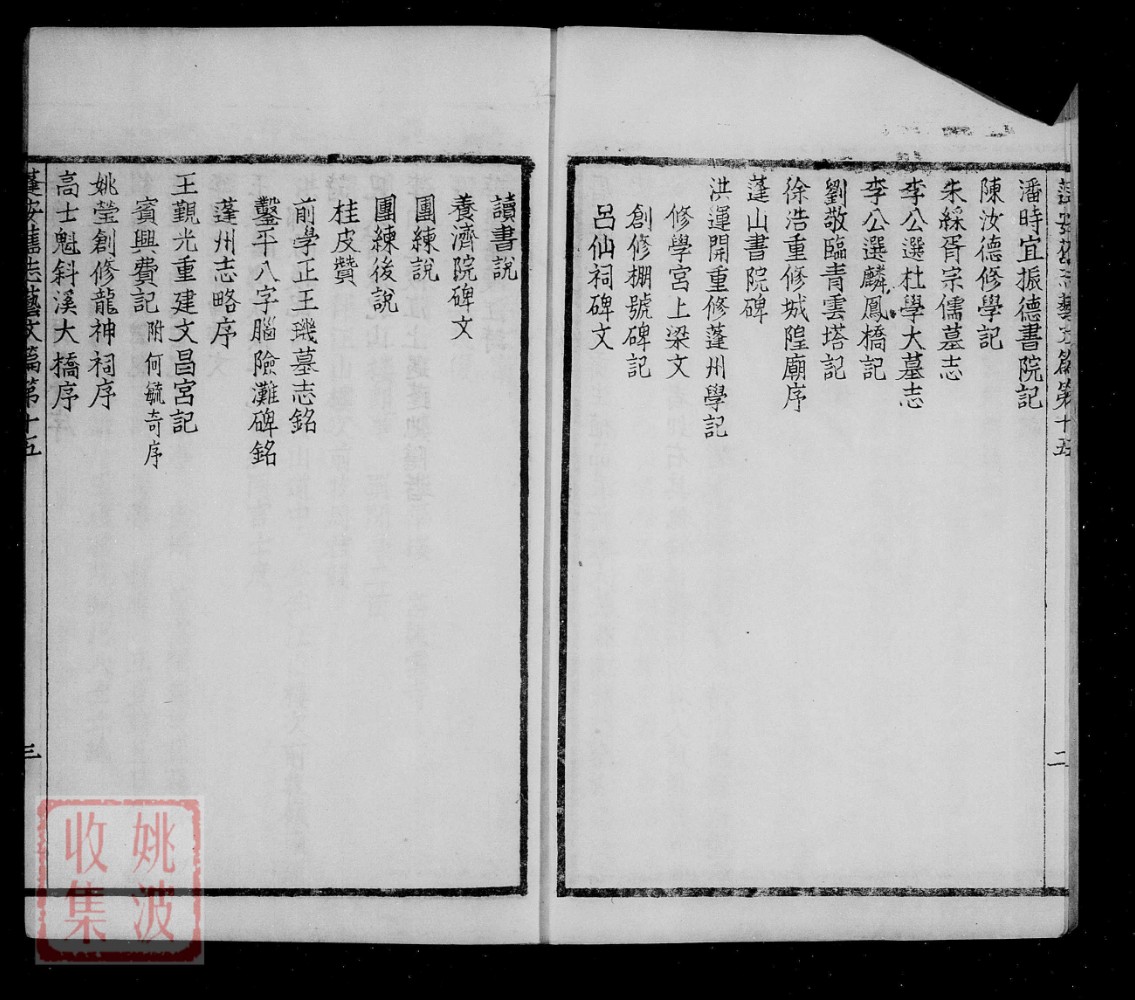 蓬安舊志藝文篇第十五
二
潘時宜振德書院記
陳汝德修學記
朱綵胥宗儒墓志
李公選杜學大墓志
李公選麟鳳橋記
劉敬臨青雲塔記
徐浩重修城隍廟序
蓬山書院碑
洪運開重修蓬州學記
修學宮上梁文
創修棚號碑記
呂仙祠碑文
讀書說
養濟院碑文
團練說
團練後說
桂皮贊
前學正王璣墓志銘
鑿平八字腦險灘碑銘
蓬州志略序
王覲光重建文昌宮記
賓興費記附何毓奇序
姚瑩創修龍神祠序
高士魁斜溪大橋序
蓬安舊志藝文篇第十五
三
姚波
收集